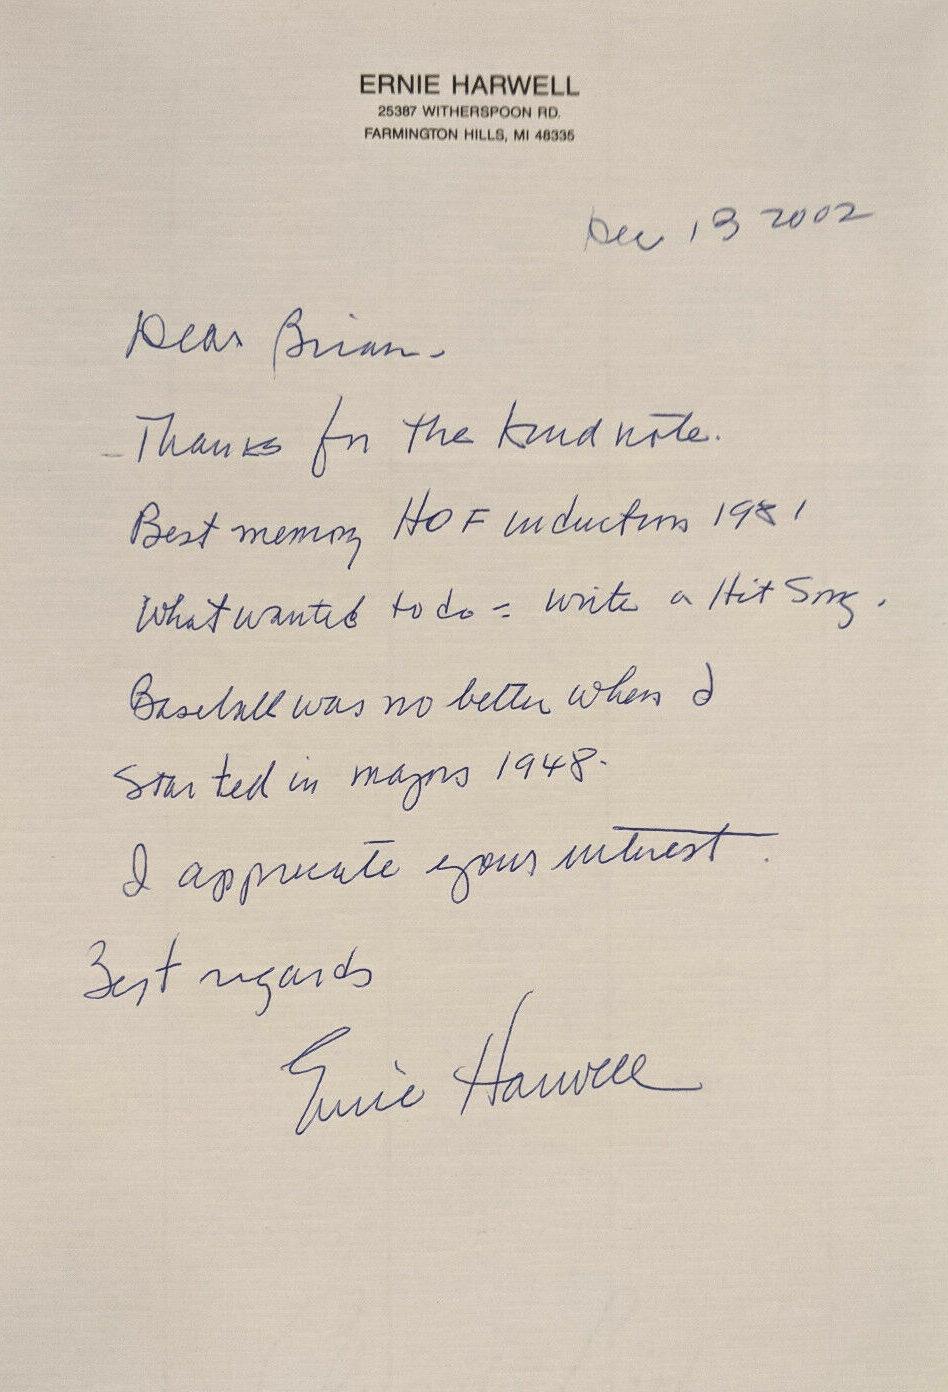 ERNIE HARWELL
25387 WITHERSPOON RD.
FARMINGTON HILLS, MI 48335
Dec 13 2002
Dear Brian.
Thanks for the kind note.
Best memory HOF induction 1981
What wanted to do = write a Hit Song.
Baseball was no better when I
started in majors 1948.
I appreciate your interest.
Best regards
Ernie Harwell